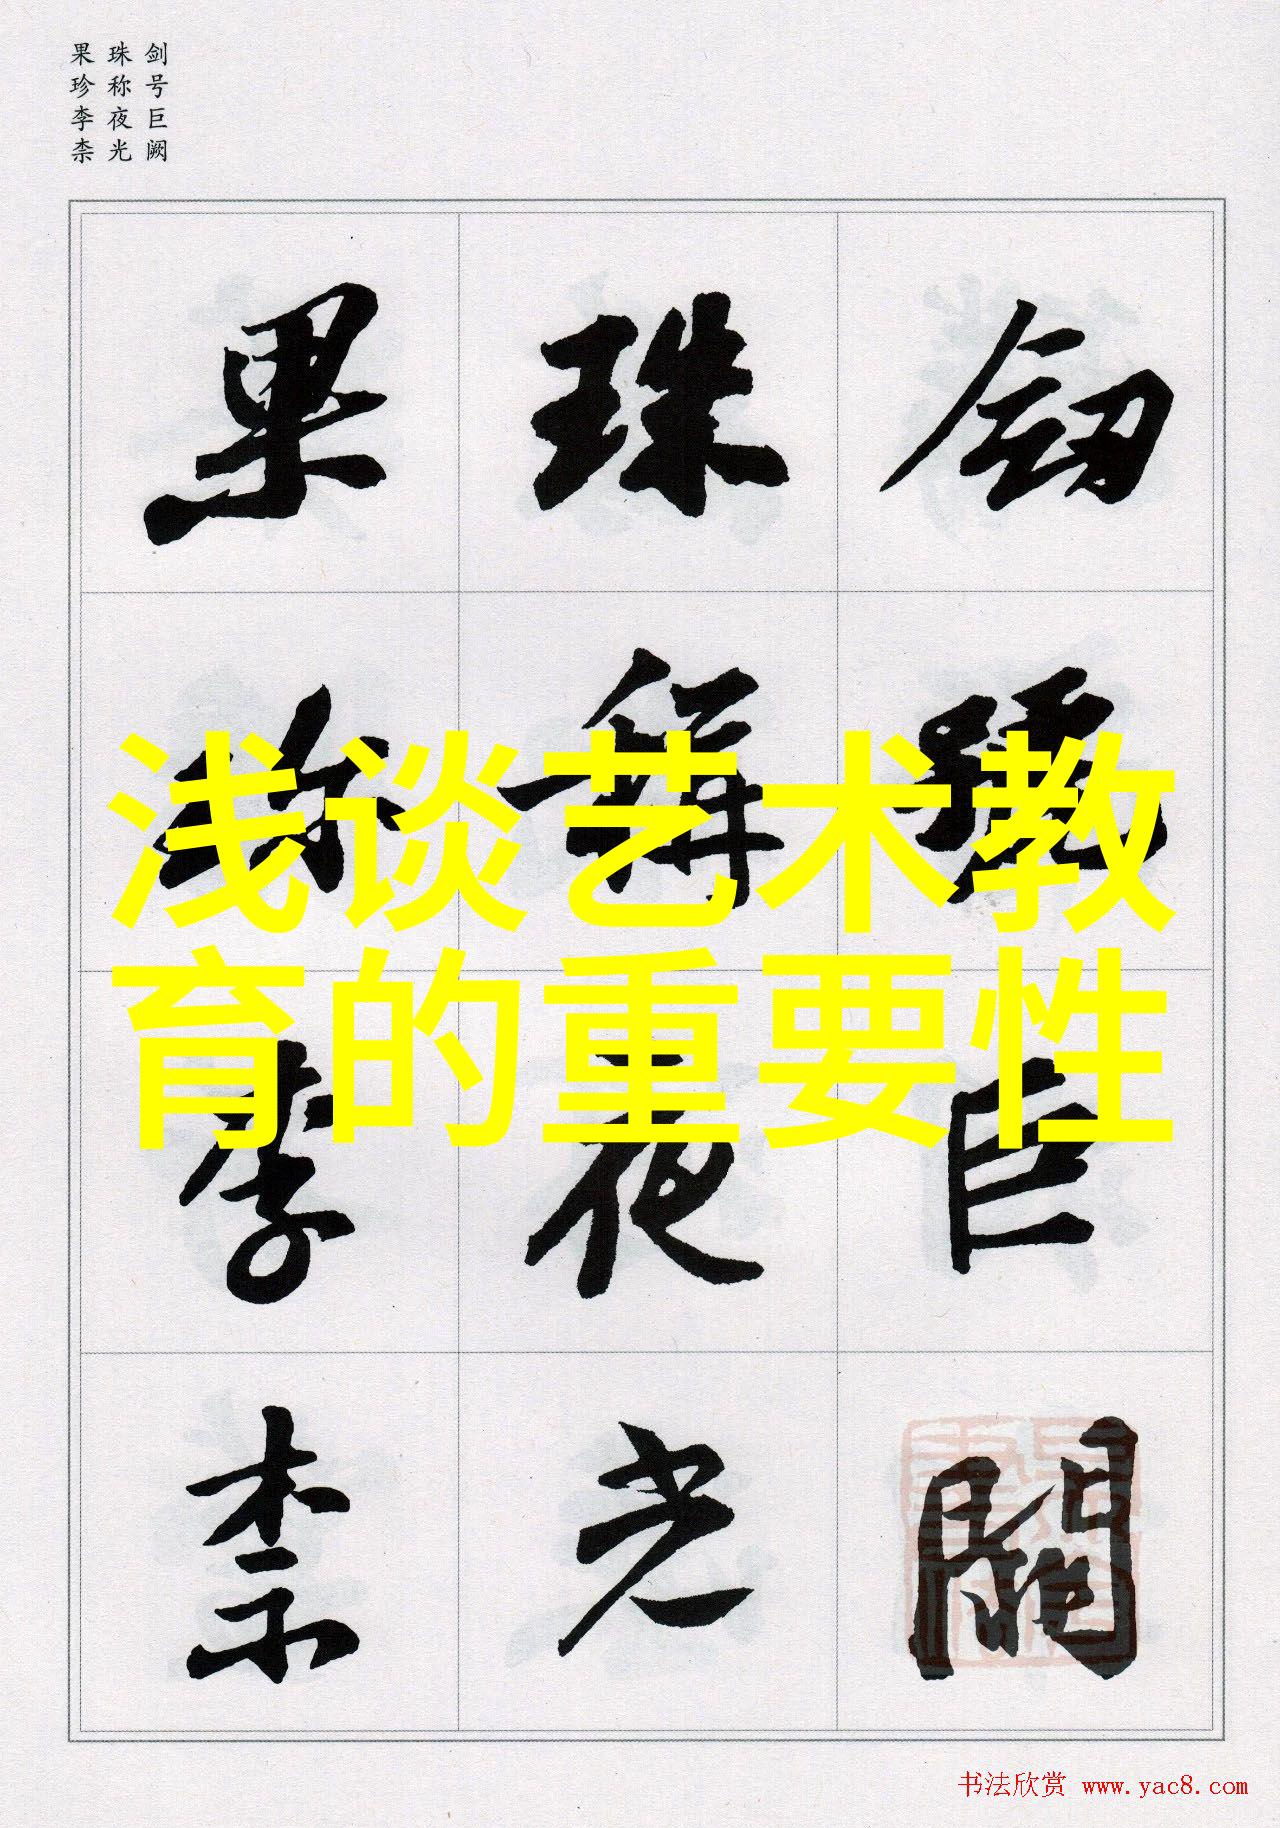 剑号巨阙
珠称夜光
果珍李柰
劒號巨闕
珠稱夜光
果珍李柰
浅谈艺术教
育的重要性
书法欣赏 www.yac8.com